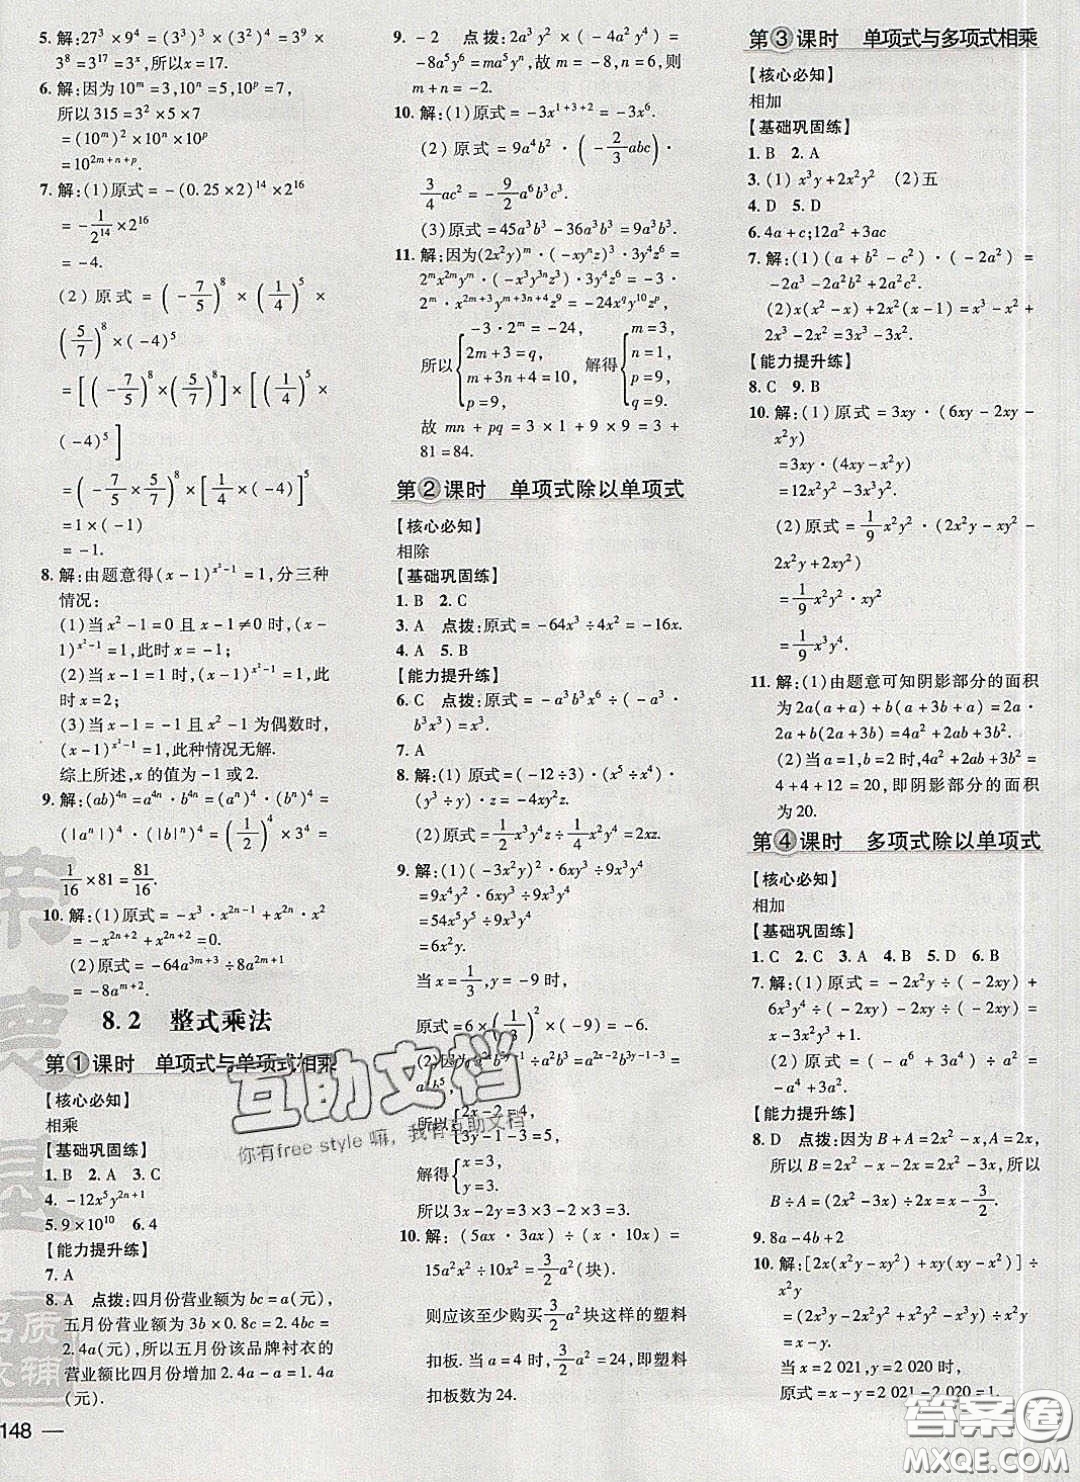 5. 解:27³×9⁴=(3³)³×(3²)⁴=3⁹×
3⁸=3¹⁷=3ˣ,所以x=17.
6. 解:因为10ᵐ=3,10ⁿ=5,10ᵖ=7,
所以315=3²×5×7
=(10ᵐ)²×10ⁿ×10ᵖ
=10²ᵐ⁺ⁿ⁺ᵖ.
7. 解:(1)原式=-(0.25×2)¹⁴×2¹⁶
=-1/2¹⁴×2¹⁶
=-4.
(2)原式=(-7/5)⁸×(1/4)⁵×
(5/7)⁸×(-4)⁵
=[(-7/5)⁸×(5/7)⁸]×[(1/4)⁵×
(-4)⁵]
=(-7/5×5/7)⁸×[1/4×(-4)]⁵
=1×(-1)
=-1.
8. 解:由题意得(x-1)^(x²-1)=1,分三种
情况:
(1)当x²-1=0且x-1≠0时,(x-
1)^(x²-1)=1,此时x=-1;
(2)当x-1=1时,(x-1)^(x²-1)=1,此
时x=2;
(3)当x-1=-1且x²-1为偶数时,
(x-1)^(x²-1)=1,此种情况无解.
综上所述,x的值为-1或2.
9. 解:(ab)⁴ⁿ=a⁴ⁿ·b⁴ⁿ=(aⁿ)⁴·(bⁿ)⁴=
(|aⁿ|)⁴·(|b|ⁿ)⁴=(1/2)⁴×3⁴=
1/16×81=81/16.
10. 解:(1)原式=-x³·x²ⁿ⁻¹+x²ⁿ·x²
=-x²ⁿ⁺²+x²ⁿ⁺²=0.
(2)原式=-64a³ᵐ⁺³÷8a²ᵐ⁺²=
-8aᵐ⁺¹.
8.2 整式乘法
第①课时 单项式与单项式相乘
【核心必知】
相乘
【基础巩固练】
1. B 2. A 3. C
4. -12x⁵y²ⁿ⁺²
5. 9×10¹⁰ 6. 4
【能力提升练】
7. A
8. A 点拨:四月份营业额为bc=a(元),
五月份营业额为3b×0.8c=2.4bc=
2.4a(元),所以五月份该品牌衬衣的
营业额比四月份增加2.4a-a=1.4a
(元).
148
9. -2 点拨:(-2a³y²)³=(-2)³a⁹y⁶=
-8a⁹y⁶=ma⁹yⁿ,故m=-8,n=6,则
m+n=-2.
10. 解:(1)原式=-3x¹⁺³⁺²=-3x⁶.
(2)原式=9a⁴b²·(-2/3abc)·
3/4ac²=-9/2a⁶b³c³.
(3)原式=45a³b³-36a³b³=9a³b³.
11. 解:因为(2x²y)ᵐ·(-xyⁿz)³·3y⁴z⁶=
2ᵐx²ᵐyᵐ·(-x³y³ⁿz³)·3y⁴z⁶=-3×
2ᵐ·x²ᵐ⁺³yᵐ⁺³ⁿ⁺⁴z⁹=-24x^q y¹⁰zᵖ,
所以{-3·2ᵐ=-24, 2m+3=q, m+3n+4=10, p=9, 解得{m=3, n=1, p=9, q=9.
故 mn+pq=3×1+9×9=3+
81=84.
第②课时 单项式除以单项式
【核心必知】
相除
【基础巩固练】
1. B 2. C
3. A 点拨:原式=-64x³÷4x²=-16x.
4. A 5. B
【能力提升练】
6. C 点拨:原式=-a³b³x⁶÷(-a³·
b³x³)=x³.
7. A
8. 解:(1)原式=(-12÷3)·(x⁵÷x⁴)·
(y³÷y)·z=-4xy²z.
(2)原式=4x²y²z÷2xy²=2xz.
9. 解:(1)(-3x²y)²·6x³y⁵÷9x⁶y⁶
=9x⁴y²·6x³y⁵÷9x⁶y⁶
=54x⁷y⁷÷9x⁵y⁶
=6x²y.
当x=1/3,y=-9时,
原式=6×(1/3)²×(-9)=-6.
所以{2x-2=4, 3y-1-3=5,
解得{x=3, y=3.
所以3x-2y=3×3-2×3=3.
10. 解:(5ax·3ax)÷(x·10x)=
15a²x²÷10x²=3/2a²(块).
则应该至少购买3/2a²块这样的塑料
扣板.当a=4时,3/2a²=24,即塑料
扣板数为24.
第③课时 单项式与多项式相乘
【核心必知】
相加
【基础巩固练】
1. B 2. A
3. (1)x³y+2x²y² (2)五
4. D 5. D
6. 4a+c;12a²+3ac
7. 解:(1)(a+b²-c²)·(-2a²)=
-2a³-2a²b²+2a²c².
(2)x(x²-x)+2x²(x-1)=x³-x²+
2x³-2x²=3x³-3x².
【能力提升练】
8. C 9. B
10. 解:(1)原式=3xy·(6xy-2xy-
x²y)
=3xy·(4xy-x²y)
=12x²y²-3x³y².
(2)原式=1/9x²y²·(2x²y-xy-2x²y+
x²y)
=1/9x²y²·(x²y-xy)
=1/9x⁴y³-1/9x³y³.
11. 解:(1)由题意可知阴影部分的面积
为2a(a+a)+b(a+3b+a)=2a·
2a+b(2a+3b)=4a²+2ab+3b².
(2)当a=1,b=2时,4a²+2ab+3b²=
4+4+12=20,即阴影部分的面积
为20.
第④课时 多项式除以单项式
【核心必知】
相加
【基础巩固练】
1. C 2. C 3. A 4. A 5. D 6. B
7. 解:(1)原式=-2x²y÷(-2xy)+
6x³y⁴÷(-2xy)=
x-3x²y³.
(2)原式=(-a⁶+3a⁴)÷a²=
-a⁴+3a².
【能力提升练】
8. D 点拨:因为B+A=2x²-x-3,
所以B=2x²-x-3-A=2x²-3x,所以
B÷A=(2x²-3x)÷(2x-3)... 
9. 8a-4b+2
10. 解:[2x(x²y-xy²)+xy(xy-x²)]÷
x²y
=(2x³y-2x²y²+x²y²-x³y)÷x²y
=x-y.
当x=2 021,y=2 020时,
原式=x-y=2 021-2 020=1.
互助文档
你有free style 嘛,我有互助文档
答案圈
MXQE.COM
荣
德
基
品质
教辅